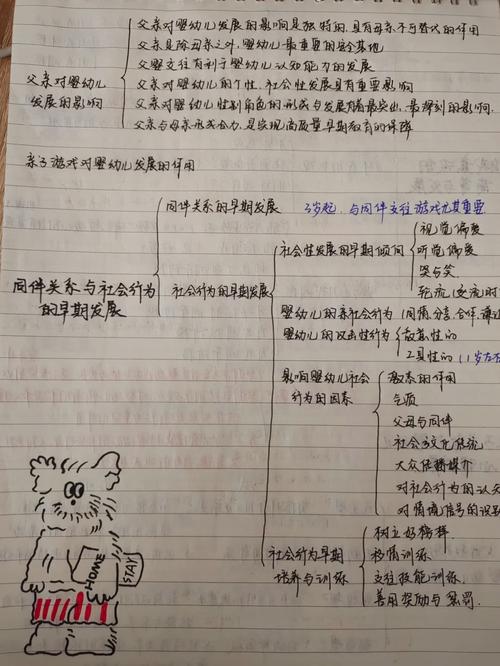 父亲对婴幼儿发展的影响是独特的,具有母亲不可替代的作用
父亲是除母亲之外,婴幼儿最重要的安全基地
父婴交往有利于婴幼儿认知能力的发展
父亲对婴幼儿发展的影响
父亲对婴幼儿的个性、社会性发展具有重要影响
父亲对婴幼儿性别角色的形成与发展有着最突出、最深刻的影响.
父亲与母亲形成合力,是实现高质量早期教育的保障
亲子游戏对婴幼儿发展的作用
同伴关系的早期发展
3岁起,与同伴交往游戏尤其重要
视觉偏爱
社会性发展的早期倾向
听觉偏爱
社会行为的早期发展
哭与笑
同伴关系与社会行为的早期发展
交流(交流时
婴幼儿的亲社会行为
(同情.分享.合作.谦让
婴幼儿的攻击性行为
敌意性的
工具性的
影响婴幼儿社会行为的因素
激素的作用
气质
父母与同伴
社会文化传统
大众传播媒介
对社会行为的认
对情境信号的识别
树立好榜样.
社会行为早期培养与训练
移情训练
交往技能训练.
善用奖励与惩罚.
HOME
STAY!